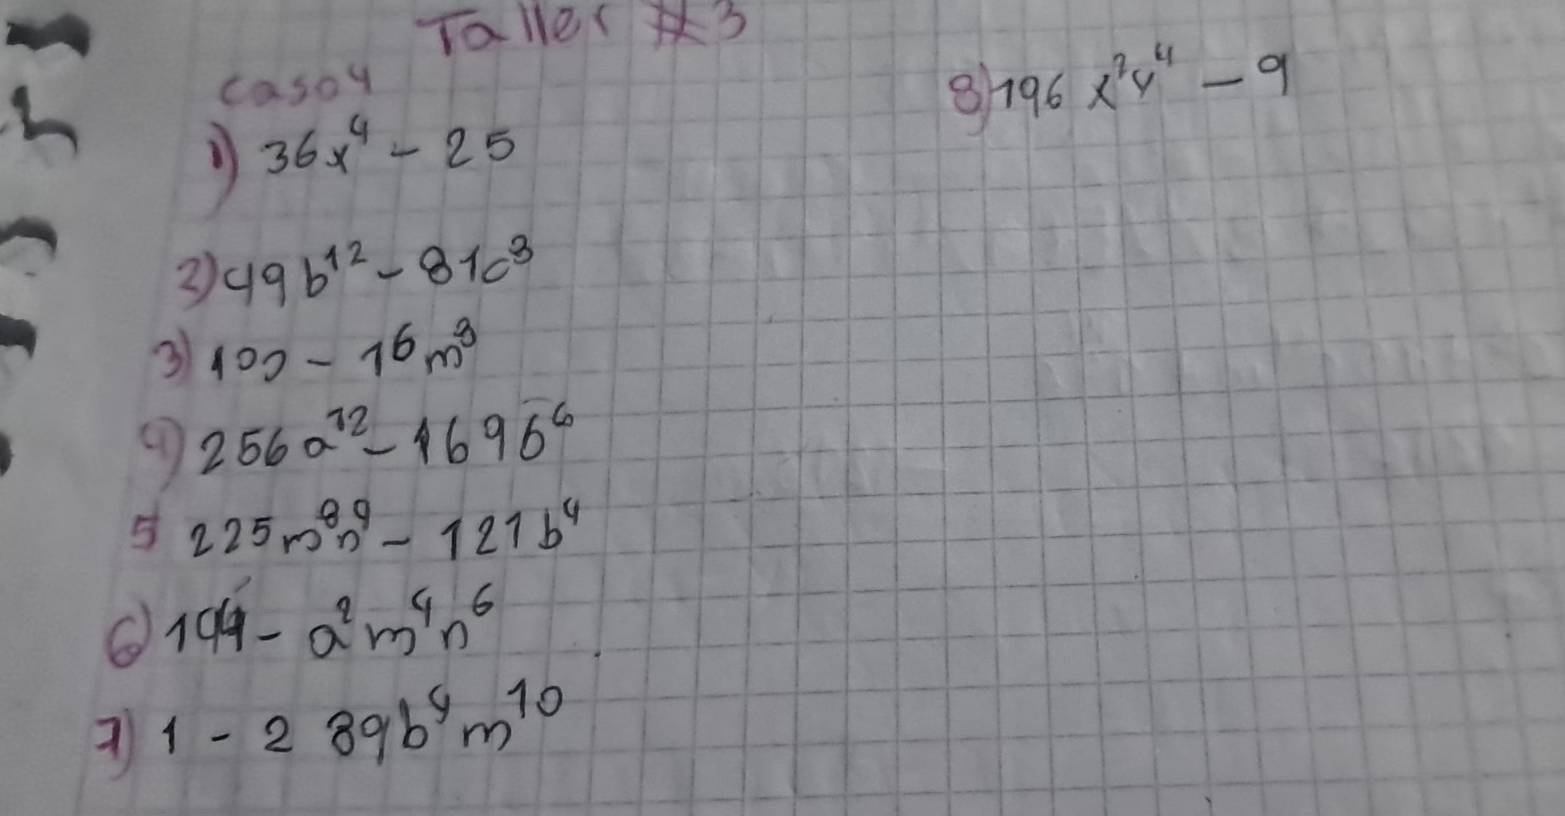 Taller #3
caso 4
1) 36x⁴ - 25
2) 49b¹² - 81c⁸
3) 100 - 16m⁸
4) 256a¹² - 169b⁶
5 225m⁸n⁹ - 121b⁴
6) 144 - a²m⁴n⁶
7) 1 - 289b⁴m¹⁰
8) 196x²y⁴ - 9